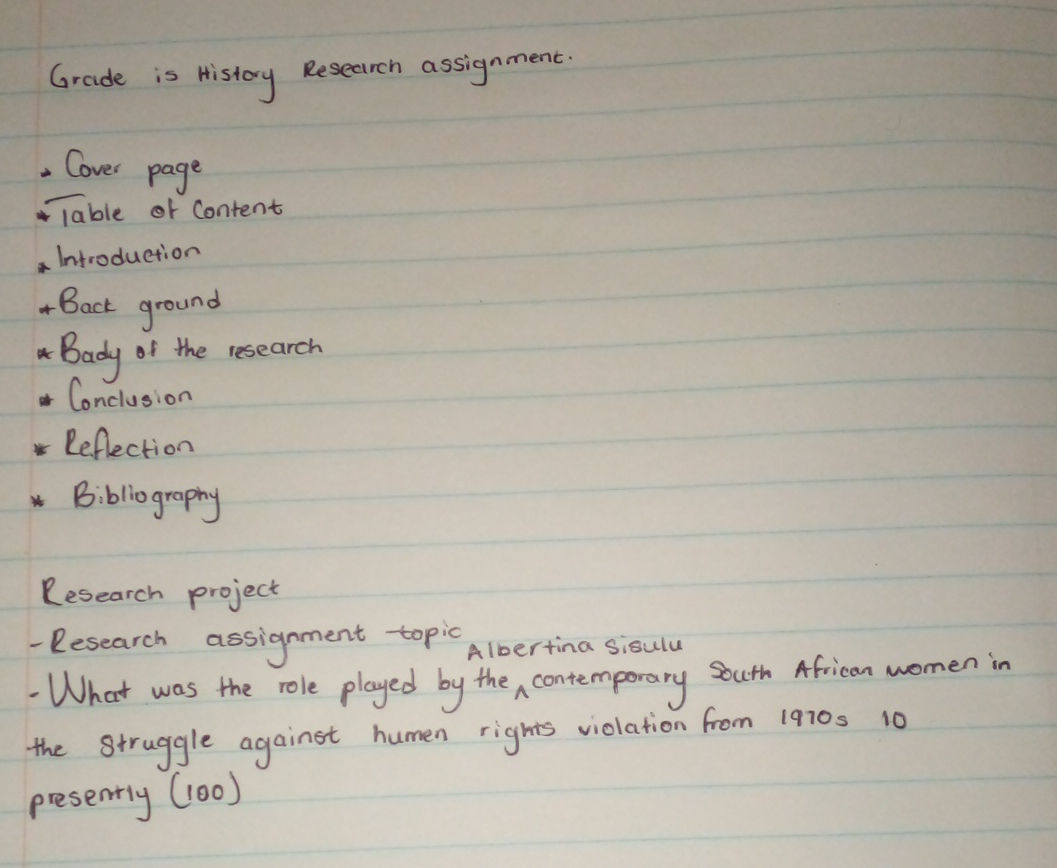 Grade is History Research assignment.
* Cover page
* Table of Content
* Introduction
* Back ground
* Bady of the research
* Conclusion
* Reflection
* Bibliography
Research project
- Research assignment topic
Albertina Sisulu
- What was the role played by the ^ contemporary South African women in
the struggle against humen rights violation from 1970s 10
presently (100)